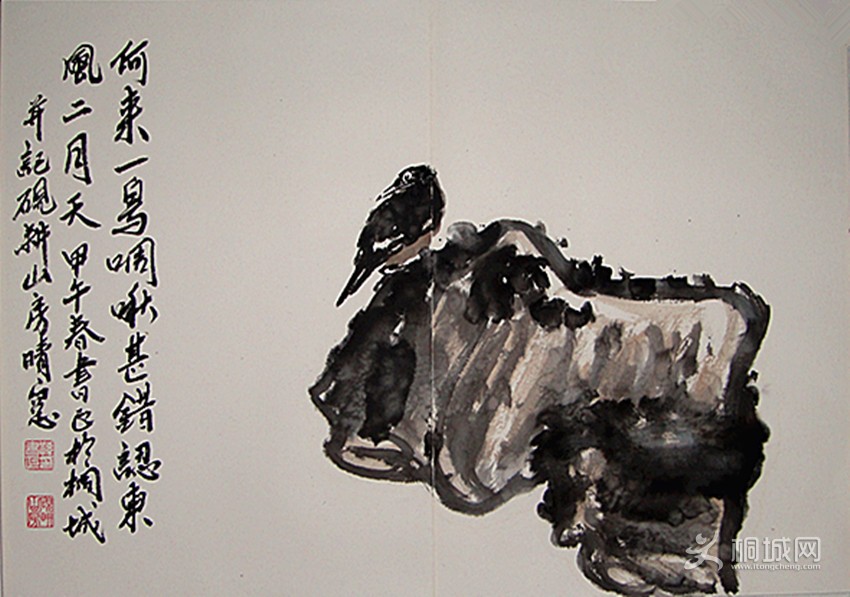 何来一鸟啁啾甚错認東
風二月天甲午春書巳於桐城
并記硯耕山房晴窓
桐城网
www.itongcheng.com